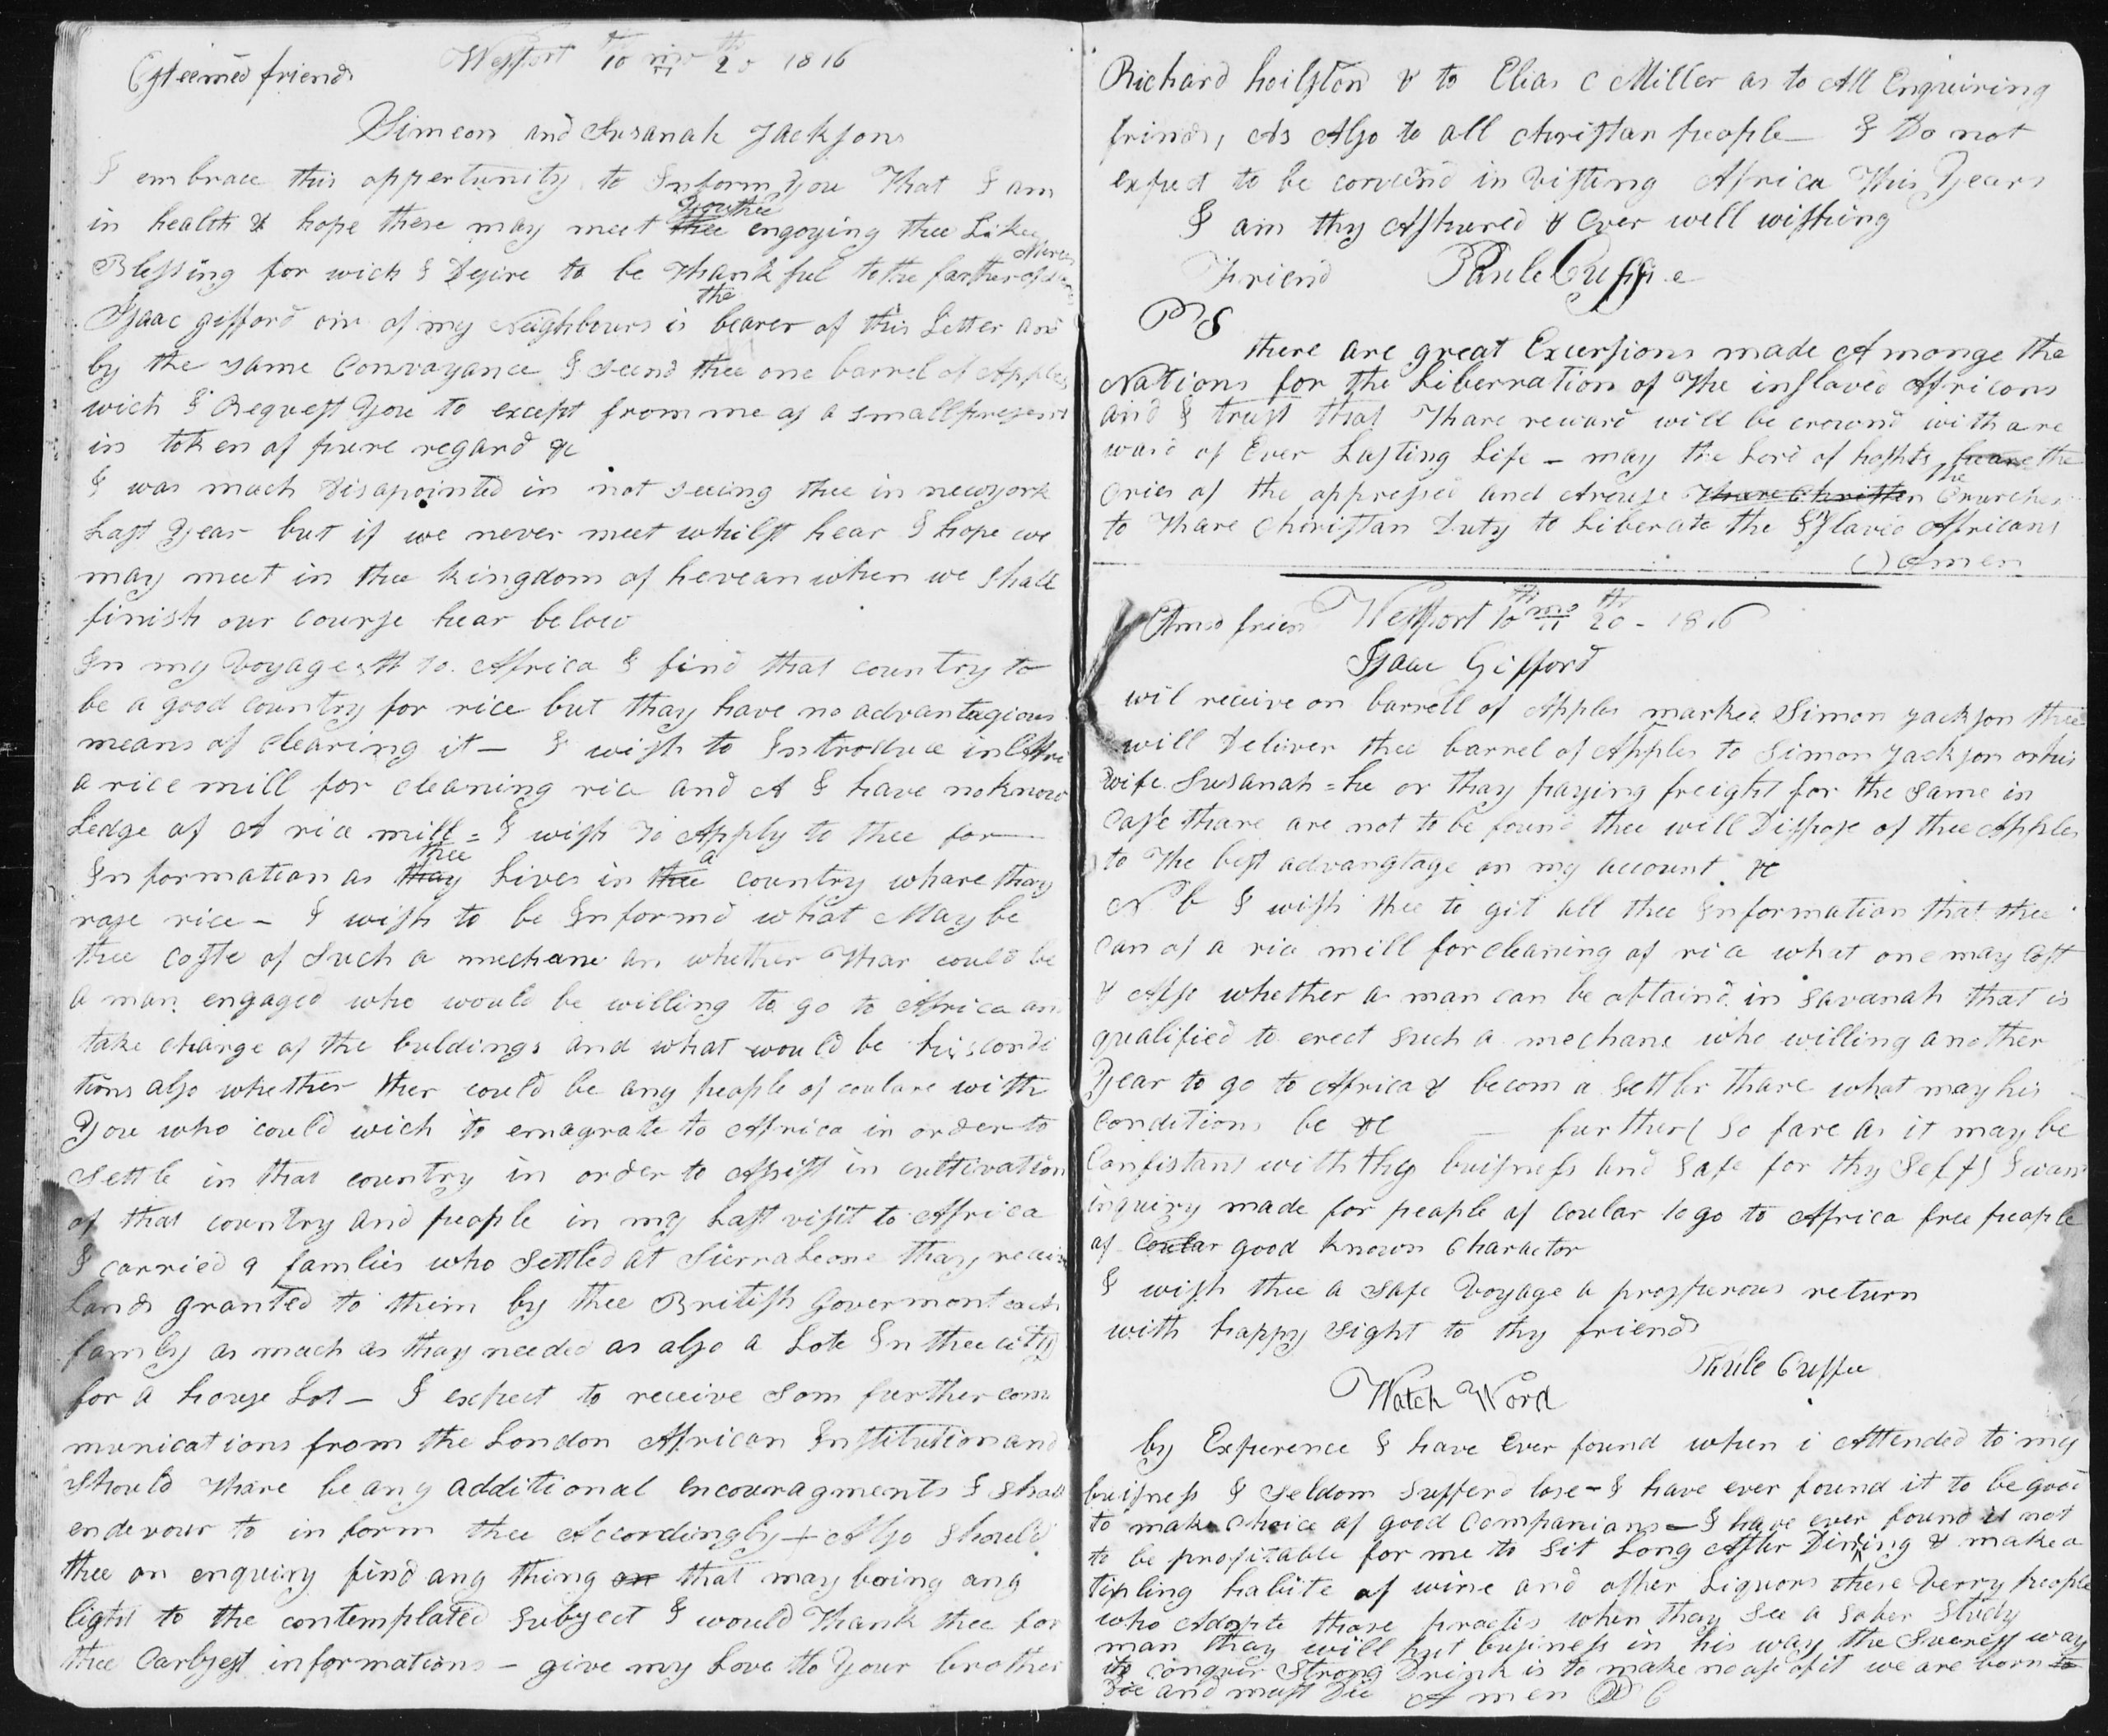 Esteemed friends Westport 10th mo 20th 1816
Simeon and Susanah Jacksons
I embrace this oppertunity to Inform you That I am
in health & hope these may meet you thee engoying thee Like
Blessing for wich I Desire to be Thankful to the farther of Mercies
Isaac gifford oin of my Neighbours is the bearer of this Letter and
by the same Convayance I seend thee one barrel of Apples
wich I Request you to except from me as a small present
in token of pure regard &c
I was mach disapointed in not seeing thee in newyork
Last year but if we never meet whilst hear I hope we
may meet in thee kingdom of hevean when we Shall
finish our course hear below
In my Voyage to Africa I find that country to
be a good country for rice but thay have no advantagious
means of clearing it — I wish to Introduce in Afri
a rice mill for cleaning rice and A I have no know
Ledge of A rice mill = I wish to Apply to thee for
Information as thay thee Lives in thee a country whare thay
rase rice — I wish to be Informd what May be
thee coste of Such a mechane an whether Thar could be
a man engaged who would be willing to go to Africa an
take charge of the buldings and what would be his condi
tions also whether ther could be any people of coulare with
You who could wich to emagrate to Africa in order to
Settle in that country in order to Assist in cultivation
of that country and people in my Last visit to Africa
I carried 9 families who Settled at Sierra Leone thay receive
Lands granted to them by thee British Goverment each
family as mach as thay needed as also a Lote In thee city
for a house Lot — I expect to receive Som further com
munications from the London African Institution and
Should thare be any additional encouragments I shall
endevour to inform thee Accordingly + Also Should
thee on enquiry find any thing on that may bring any
light to the contemplated Subject I would Thank thee for
thee Earlyest informations — give my Love to Your brother
Richard hoilston & to Elias C Miller as to All Enquiring
frinds, As Also to all christan people — I Do not
expect to be in Visiting Africa This Years
I am thy Asshured & Ever well wisshing
Friend Paule Cuffe
PS
there are great Excersions made Amonge the
Nations for the Liberration of The inslaved Africans
and I trust that Thare reward will be crownd with a re
ward of Ever Lasting Life — may the Lord of hoshts heare the
Cries of the oppressed and Arouse Thare Christten the Churches
to Thare Christan Duty to Liberate the Islaved Africans
() Amen
Esteemed friend Westport 10th mo 20th - 1816
Isaac Gifford
wil receive on barrell of Apples marked Simon Jackson thee
will Deliver thee barrel of Apples to Simon Jackson or his
wife Susanah = he or thay paying freight for the same in
Case thare are not to be found thee will Dispose of thee Apples
to The best advangtage on my account &c
N b I wish thee to git all thee Information that thee
can of a rice mill for cleaning of rice what one may Cost
& Also whether a man can be obtaind in Savanah that is
qualified to erect such a mechane who willing another
Year to go to Africa & becom a Settler thare what may his
Conditions be &c — further (so fare as it may be
Consistant with thy buisness and Safe for thy Self) I want
inquiry made for people of coular to go to Africa free people
of Coular good known Charactor
I wish thee a safe Voyage a prosperous return
with happy Sight to thy friends
Paule Cuffee
Watch Word
by Experence I have Ever found when i Attended to my
buisness I Seldom Sufferd lose — I have ever found it to be good
to make Choice of good Companians — I have ever found it not
to be profitable for me to Sit Long After Dinning & make a
tipling habite of wine and other Liquors these Verry people
who Adopte those practis when thay See a Sober Study
man thay will put business in his way the Surest way
to conquir Strong Drink is to make no use of it we are born to
Die and must Die Amen P C